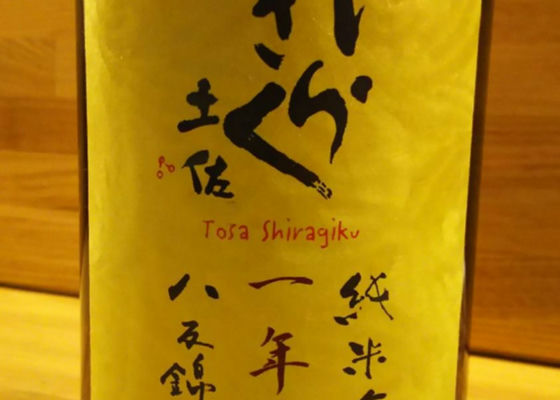 ら
ぎく
土佐
Tosa Shiragiku
純米
一年
八反錦